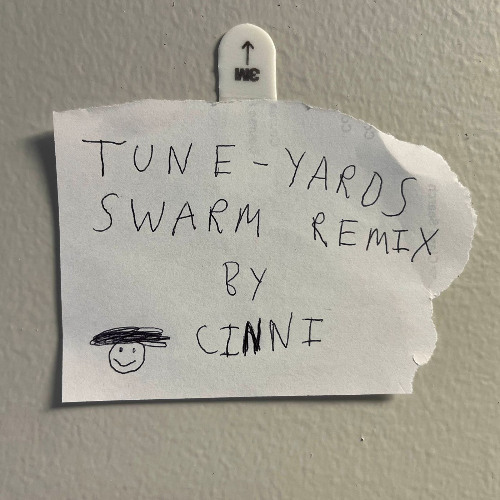 3M
TUNE-YARDS
SWARM REMIX
BY
CINNI